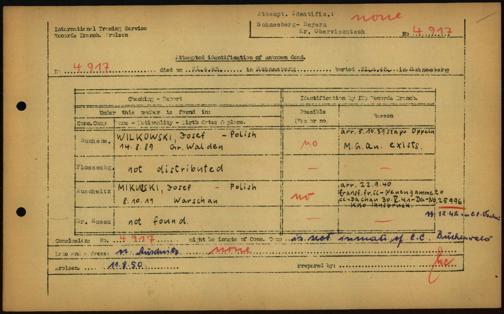 International Tracing Service
Records Branch, Arolsen
Attempt. Identific.: none
Schneeberg - Bayern
Kr. Oberviechtach
№ 4917
Attempted identification of unknown dead.
№ 4917 died on in Schneeberg buried in Schneeberg
Checking - Report
Identification by ITS Records Branch.
Under this number is found in:
Conc. Camp Name - Nationality - Birth date & place.
Possible Yes or no
Reason
Buchenw. WILKOWSKI, Josef - Polish
14.8.89 Gr. Walden
no
arr. 8.10.39 Stapo Oppeln
M.G. an. exists.
Flossenbg. not distributed
— —
Auschwitz MIKULSKI, Josef - Polish
8.10.19 Warschau
no
arr. 22.9.40
transf. fr. CC-Neuengamme to
CC-Dachau 30.8.41-Da-No. 25496
Gr. Rosen not found.
— —
Conclusion: No. 4917 might be inmate of Conc. Camp is not inmate of C.C. Buchenwald
n. Auschwitz none
Arolsen 11.8.50 prepared by: